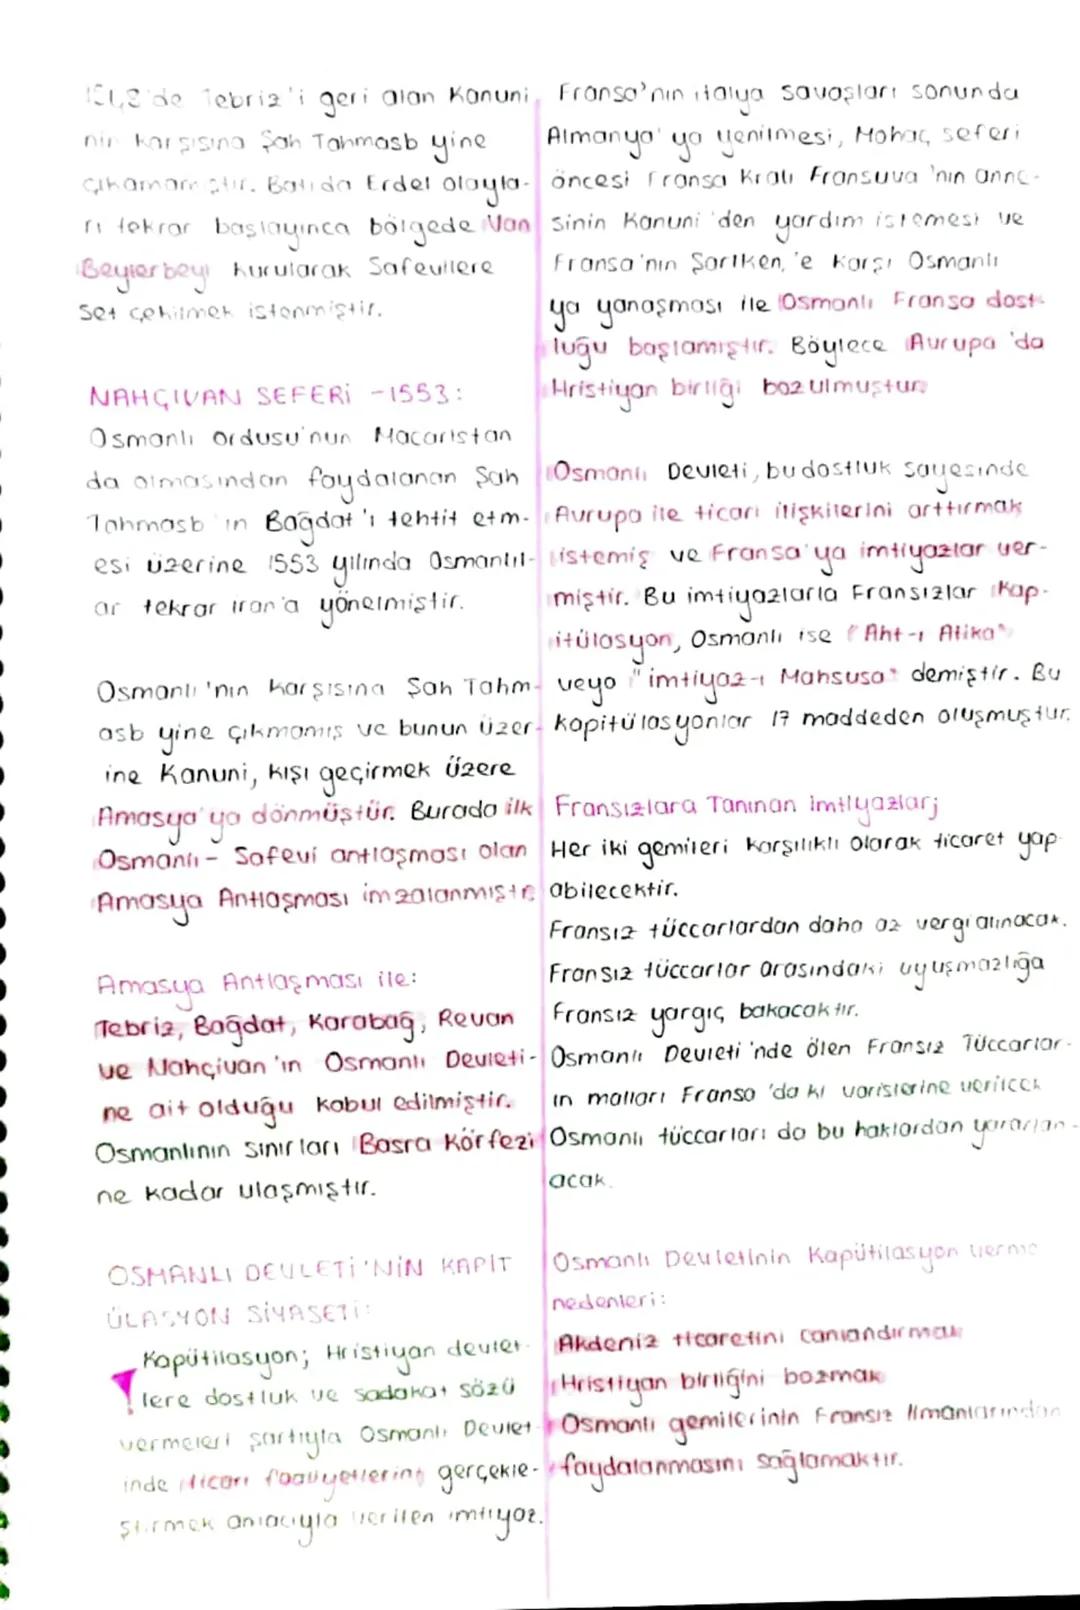 de Tebriz'i geri alan Kanuni
nin karşısına Şah Tahmasb yine
çıkamamıştır. Batıda Erdel olayla-
rı tekrar başlayınca bölgede Van
Beylerbeyi kurularak Safevilere
Set çekilmek istenmiştir.
NAHÇIVAN SEFERİ -1553:
Osmanlı ordusu'nun Macaristan
da olmasından faydalanan Şah
Tahmasb'ın Bağdat'ı tehtit etm-
esi üzerine 1553 yılında Osmanlıl-
ar tekrar iran'a yönelmiştir.
Osmanlı'nın karşısına Şah Tahm-
asb yine çıkmamış ve bunun üzer-
ine Kanuni, kışı geçirmek üzere
Amasya'ya dönmüştür. Burada ilk
Osmanlı - Safevi antlaşması olan
Amasya Antlaşması imzalanmıştır
Amasya Antlaşması ile:
Tebriz, Bağdat, Karabağ, Revan
ve Nahçivan'ın Osmanlı Devleti-
ne ait olduğu kabul edilmiştir.
Osmanlının sınırları Basra Körfezi
ne kadar ulaşmıştır.
OSMANLI DEVLETİ'NİN KAPİT
ÜLASYON SİYASETİ:
Kapütilasyon; Hristiyan devlet-
lere dostluk ve sadakat sözü
vermeleri şartıyla Osmanlı Devlet
inde ticari faaliyetlerini gerçekle-
ştirmek amacıyla verilen imtiyaz.
Fransa'nın italya savaşları sonunda
Almanya'ya yenilmesi, Mohaç seferi
öncesi Fransa Kralı Fransuva'nın anne-
sinin Kanuni'den yardım istemesi ve
Fransa'nın Şarlken,'e karşı Osmanlı
ya yanaşması ile Osmanlı Fransa dost-
luğu başlamıştır. Böylece Avrupa'da
Hristiyan birliği bozulmuştur.
Osmanlı Devleti, bu dostluk sayesinde
Avrupa ile ticari ilişkilerini arttırmak
istemiş ve Fransa'ya imtiyazlar ver-
miştir. Bu imtiyazlarla Fransızlar Kap-
itülasyon, Osmanlı ise "Aht-ı Atika"
veya "imtiyaz-ı Mahsusa" demiştir. Bu
kapitülasyonlar 17 maddeden oluşmuştur.
Fransızlara Tanınan imtiyazlar;
Her iki gemileri karşılıklı olarak ticaret yap-
abilecektir.
Fransız tüccarlardan daha az vergi alınacak.
Fransız tüccarlar arasındaki uyuşmazlığa
Fransız yargıç bakacaktır.
Osmanlı Devleti'nde ölen Fransız Tüccarlar-
ın malları Fransa'da ki varislerine verilcek
Osmanlı tüccarları da bu haklardan yararlan-
acak.
Osmanlı Devletinin Kapütilasyon verme
nedenleri:
Akdeniz ticaretini canlandırmak
Hristiyan birliğini bozmak
Osmanlı gemilerinin Fransız limanlarından
faydalanmasını sağlamaktır.